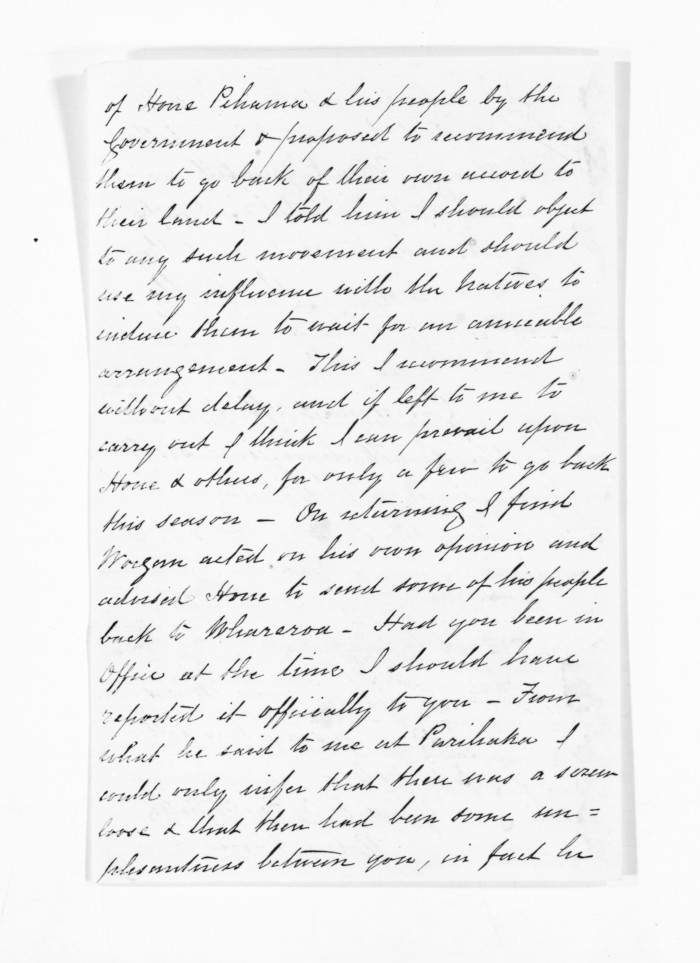 of Hone Pihama & his people by the
Government & proposed to recommend
them to go back of their own accord to
their land - I told him I should object
to any such movement and should
use my influence with the Natives to
induce them to wait for an amicable
arrangement - This I recommend
without delay, and if left to me to
carry out I think I can prevail upon
Hone & others, for only a few to go back
this season - On returning I find
Worgan acted on his own opinion and
advised Hone to send some of his people
back to Whareroa - Had you been in
Office at the time I should have
reported it officially to you - From
what he said to me at Parihaka I
could only infer that there was a screw
loose & that there had been some un=
pleasantness between you, in fact he